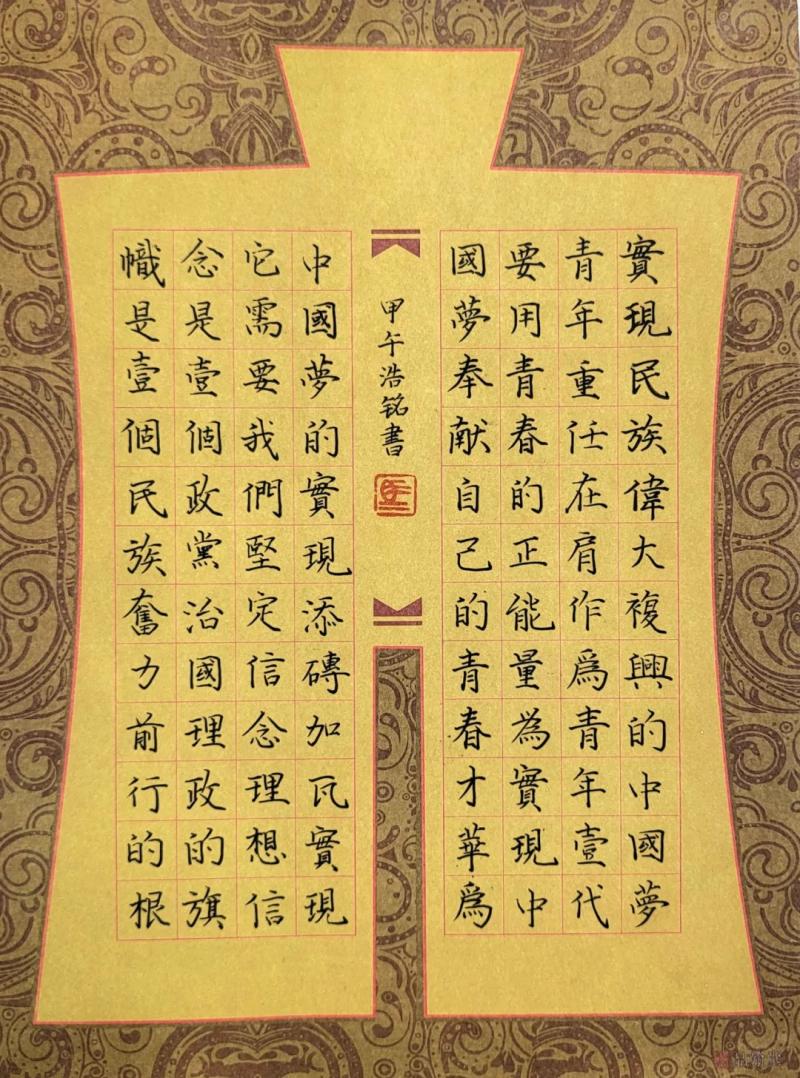 實現民族偉大複興的中國夢
青年重任在肩作爲青年壹代
要用青春的正能量為實現中
國夢奉献自己的青春才華爲
甲午浩铭書
中國夢的實現添磚加瓦實現
它需要我們堅定信念理想信
念是壹個政黨治國理政的旗
幟是壹個民族奮力前行的根